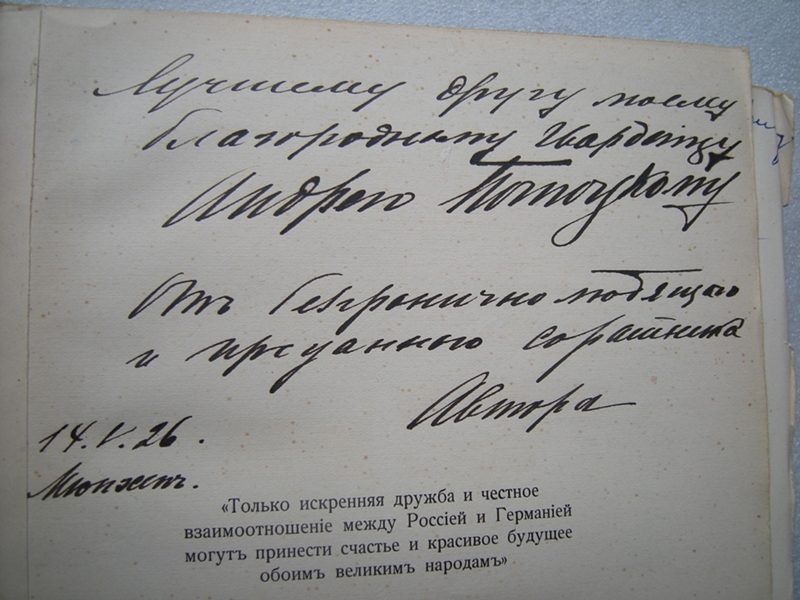 Лучшему другу моему
благородному Гвардейцу
Андрею Потоцкому
Отъ безгранично любящаго
и преданнаго соратника
Автора
14.V.26.
Мюнхенъ.
«Только искренняя дружба и честное
взаимоотношеніе между Россіей и Германіей
могутъ принести счастье и красивое будущее
обоимъ великимъ народамъ»